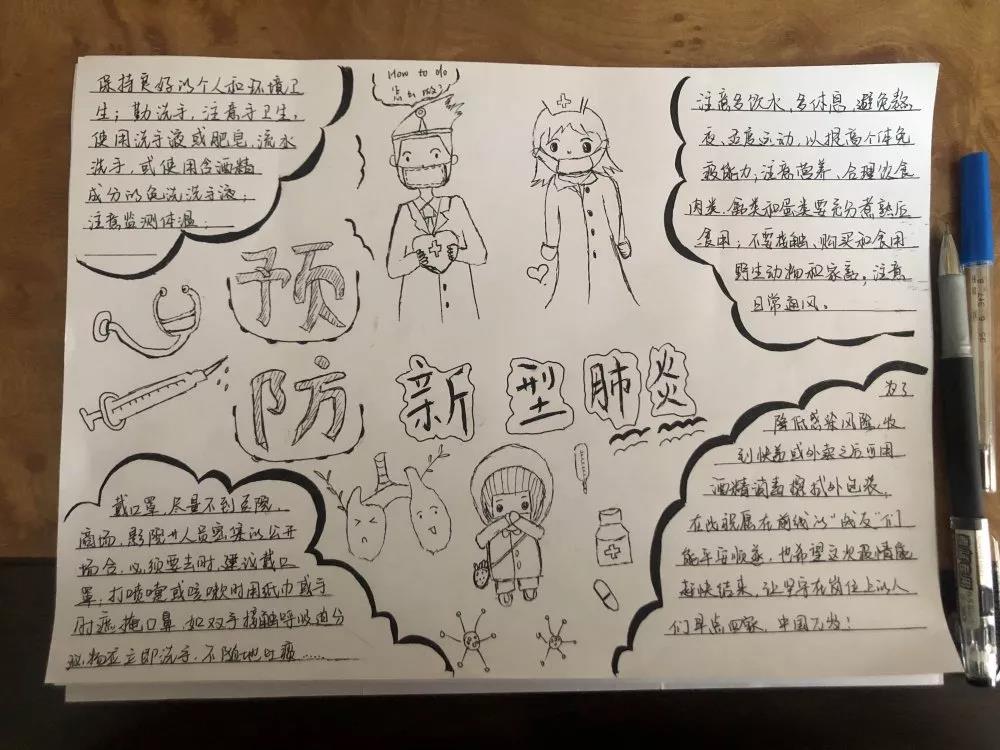 保持良好的个人和环境卫
生；勤洗手，注意手卫生，
使用洗手液或肥皂，流水
洗手，或使用含酒精
成分的免洗洗手液；
注意监测体温；
How to do
怎么做？
注意多饮水，多休息，避免熬
夜、适度运动，以提高个体免
疫能力；注意营养、合理饮食
肉类、禽类和蛋类要充分煮熟后
食用；不要接触、购买和食用
野生动物和家禽，注意
日常通风。
预
防 新型肺炎
戴口罩，尽量不到医院，
商场、影院等人员密集的公开
场合，必须要去时，建议戴口
罩，打喷嚏或咳嗽时用纸巾或手
肘遮掩口鼻，如双手接触呼吸道分
泌物应立即洗手，不随地吐痰……
为了
降低感染风险，收
到快递或外卖之后可用
酒精消毒擦拭外包装，
在此祝愿在前线的“战友”们
能平安顺遂，也希望这次疫情能
赶快结束，让坚守在岗位上的人
们早点回家，中国加油！